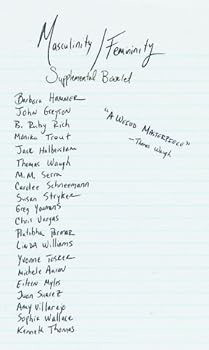 Masculinity / Femininity
Supplemental Booklet
Barbara Hammer
John Greyson
B. Ruby Rich
Monika Treut
Jack Halberstam
"A Weird Masterpiece"
-Thomas Waugh
Thomas Waugh
M.M. Serra
Carolee Schneemann
Susan Stryker
Greg Youmans
Chris Vargas
Pratibha Parmar
Linda Williams
Yvonne
Michele Aaron
Eileen Myles
Juan Suarez
Amy Villarejo
Sophia Wallace
Kenneth Thomas